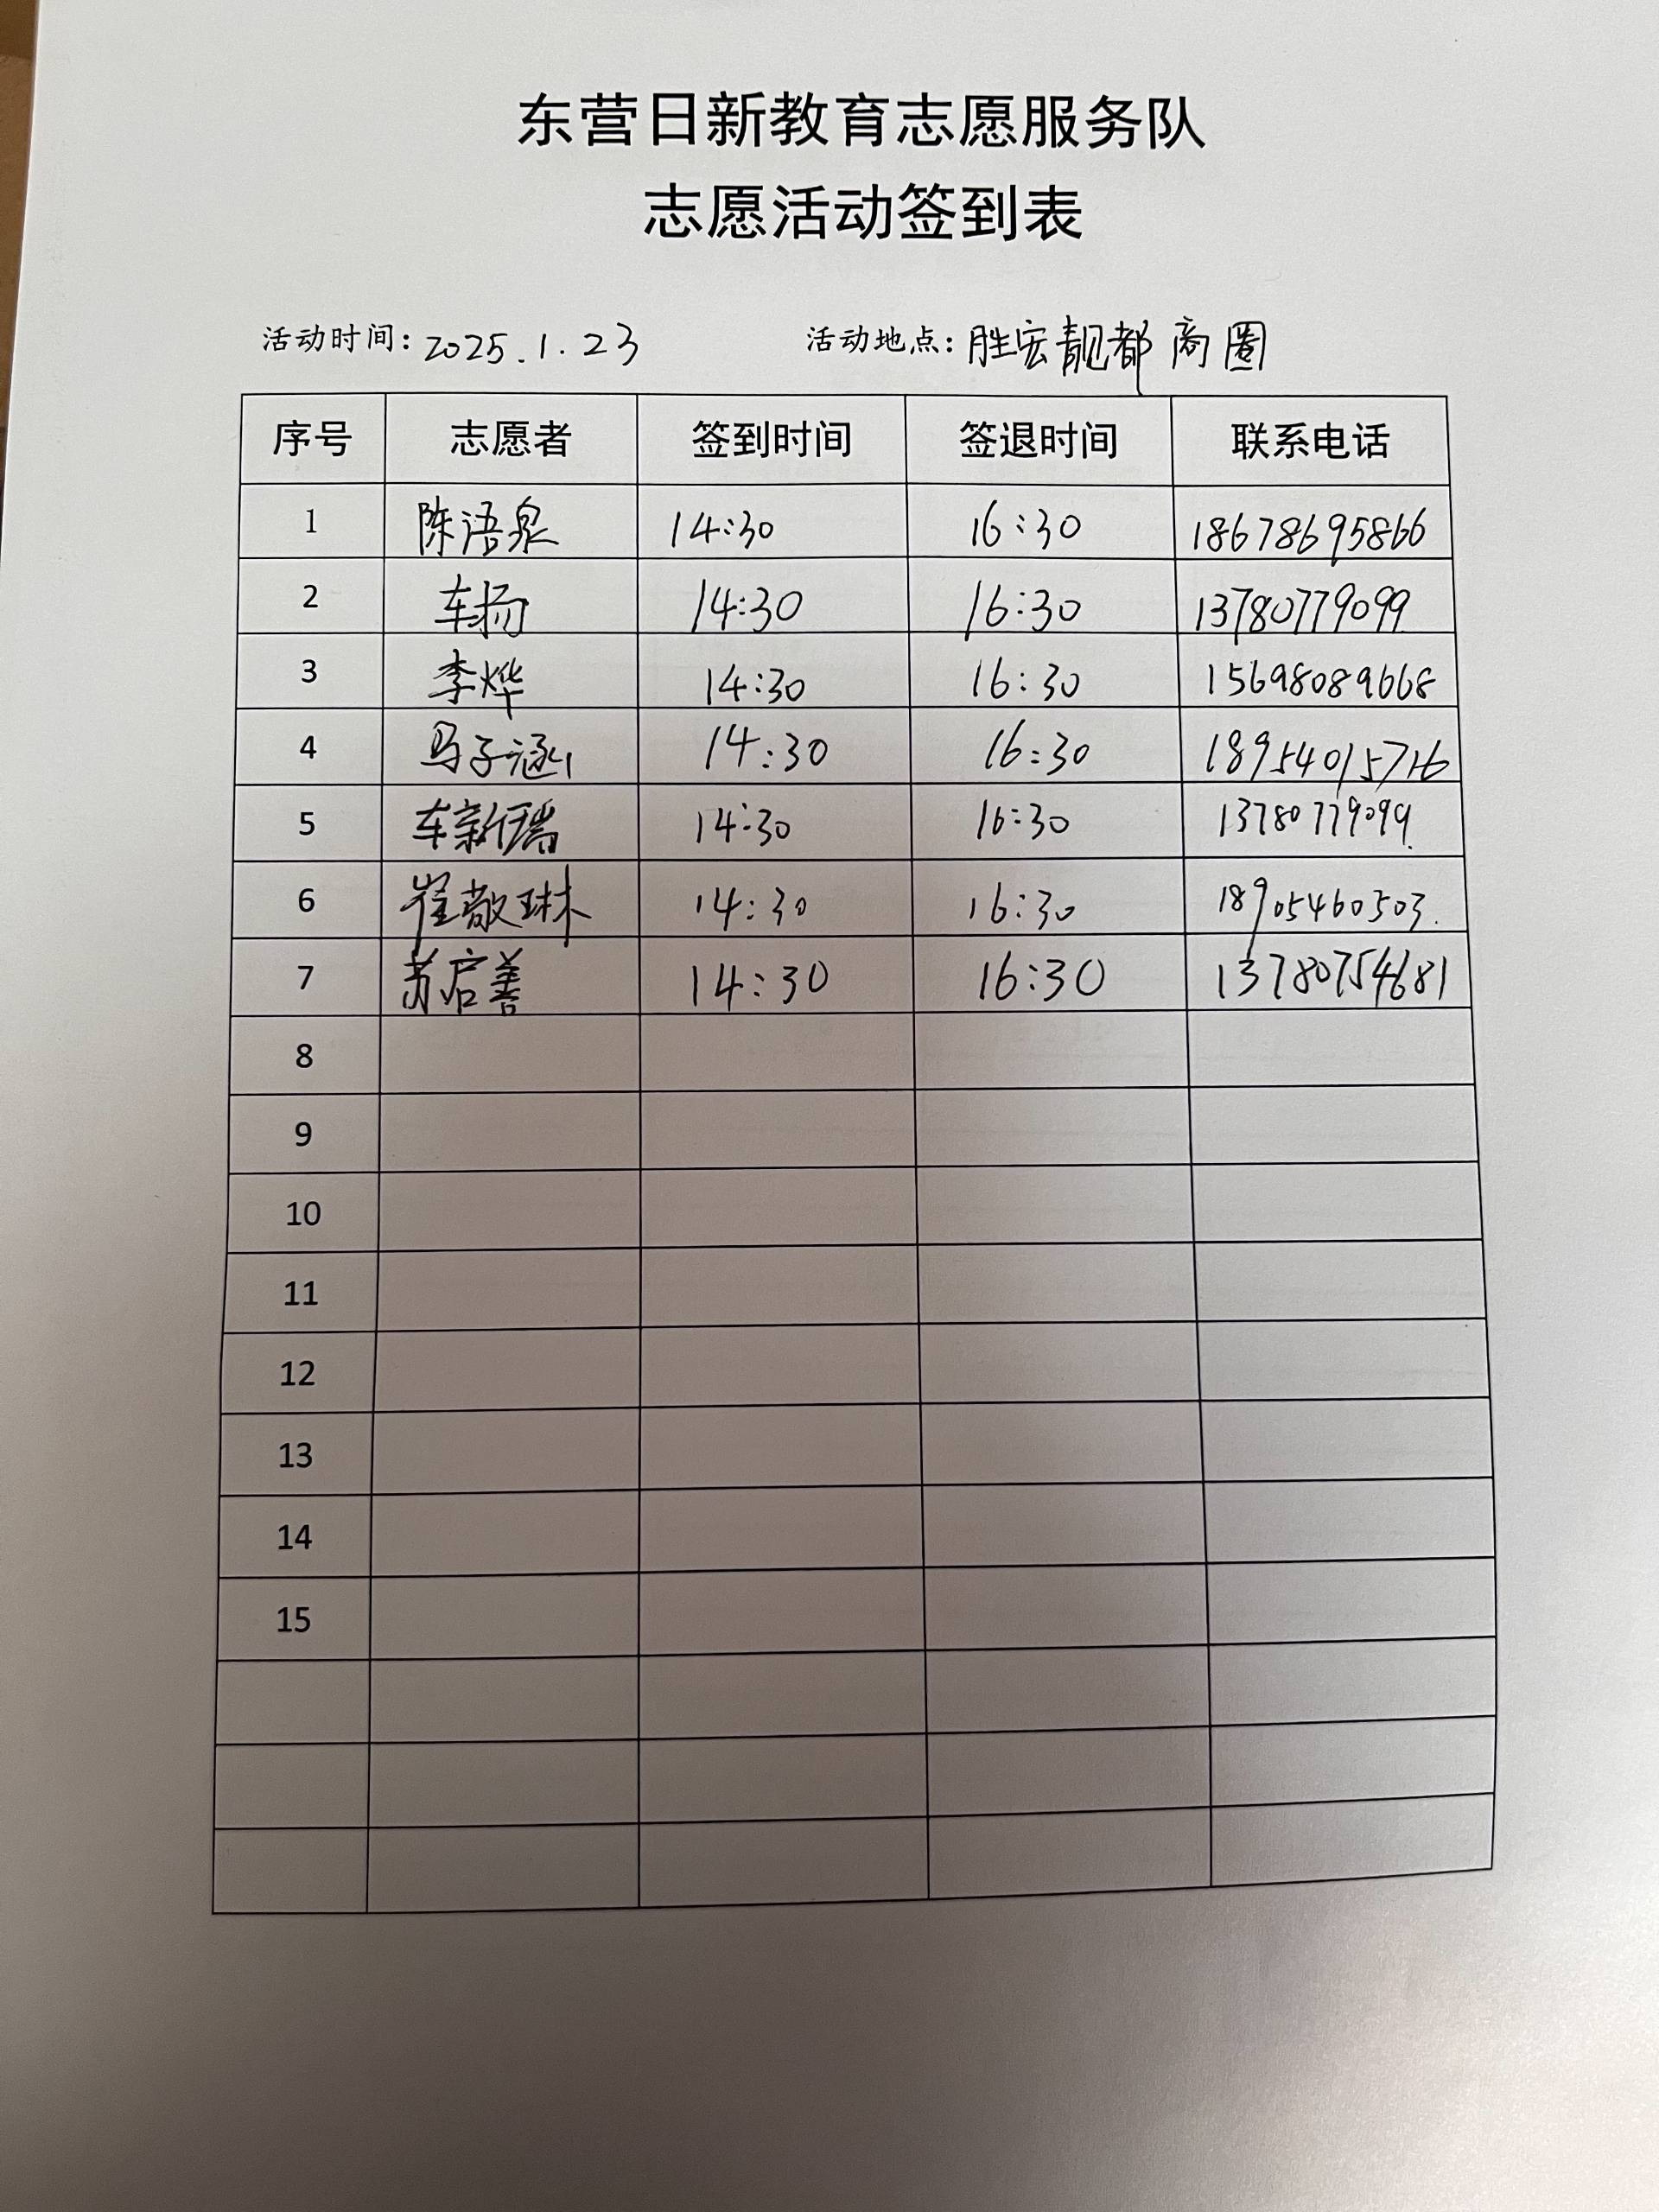 东营日新教育志愿服务队
志愿活动签到表
活动时间：2025.1.23 活动地点：胜宏靓都商圈
序号 志愿者 签到时间 签退时间 联系电话
1 陈语泉 14:30 16:30 18678695866
2 车扬 14:30 16:30 13780779099
3 李烨 14:30 16:30 15698089668
4 马子涵 14:30 16:30 18954015716
5 车新瑞 14:30 16:30 13780779099.
6 崔敬琳 14:30 16:30 18905460503.
7 苏启善 14:30 16:30 13780754681
8
9
10
11
12
13
14
15